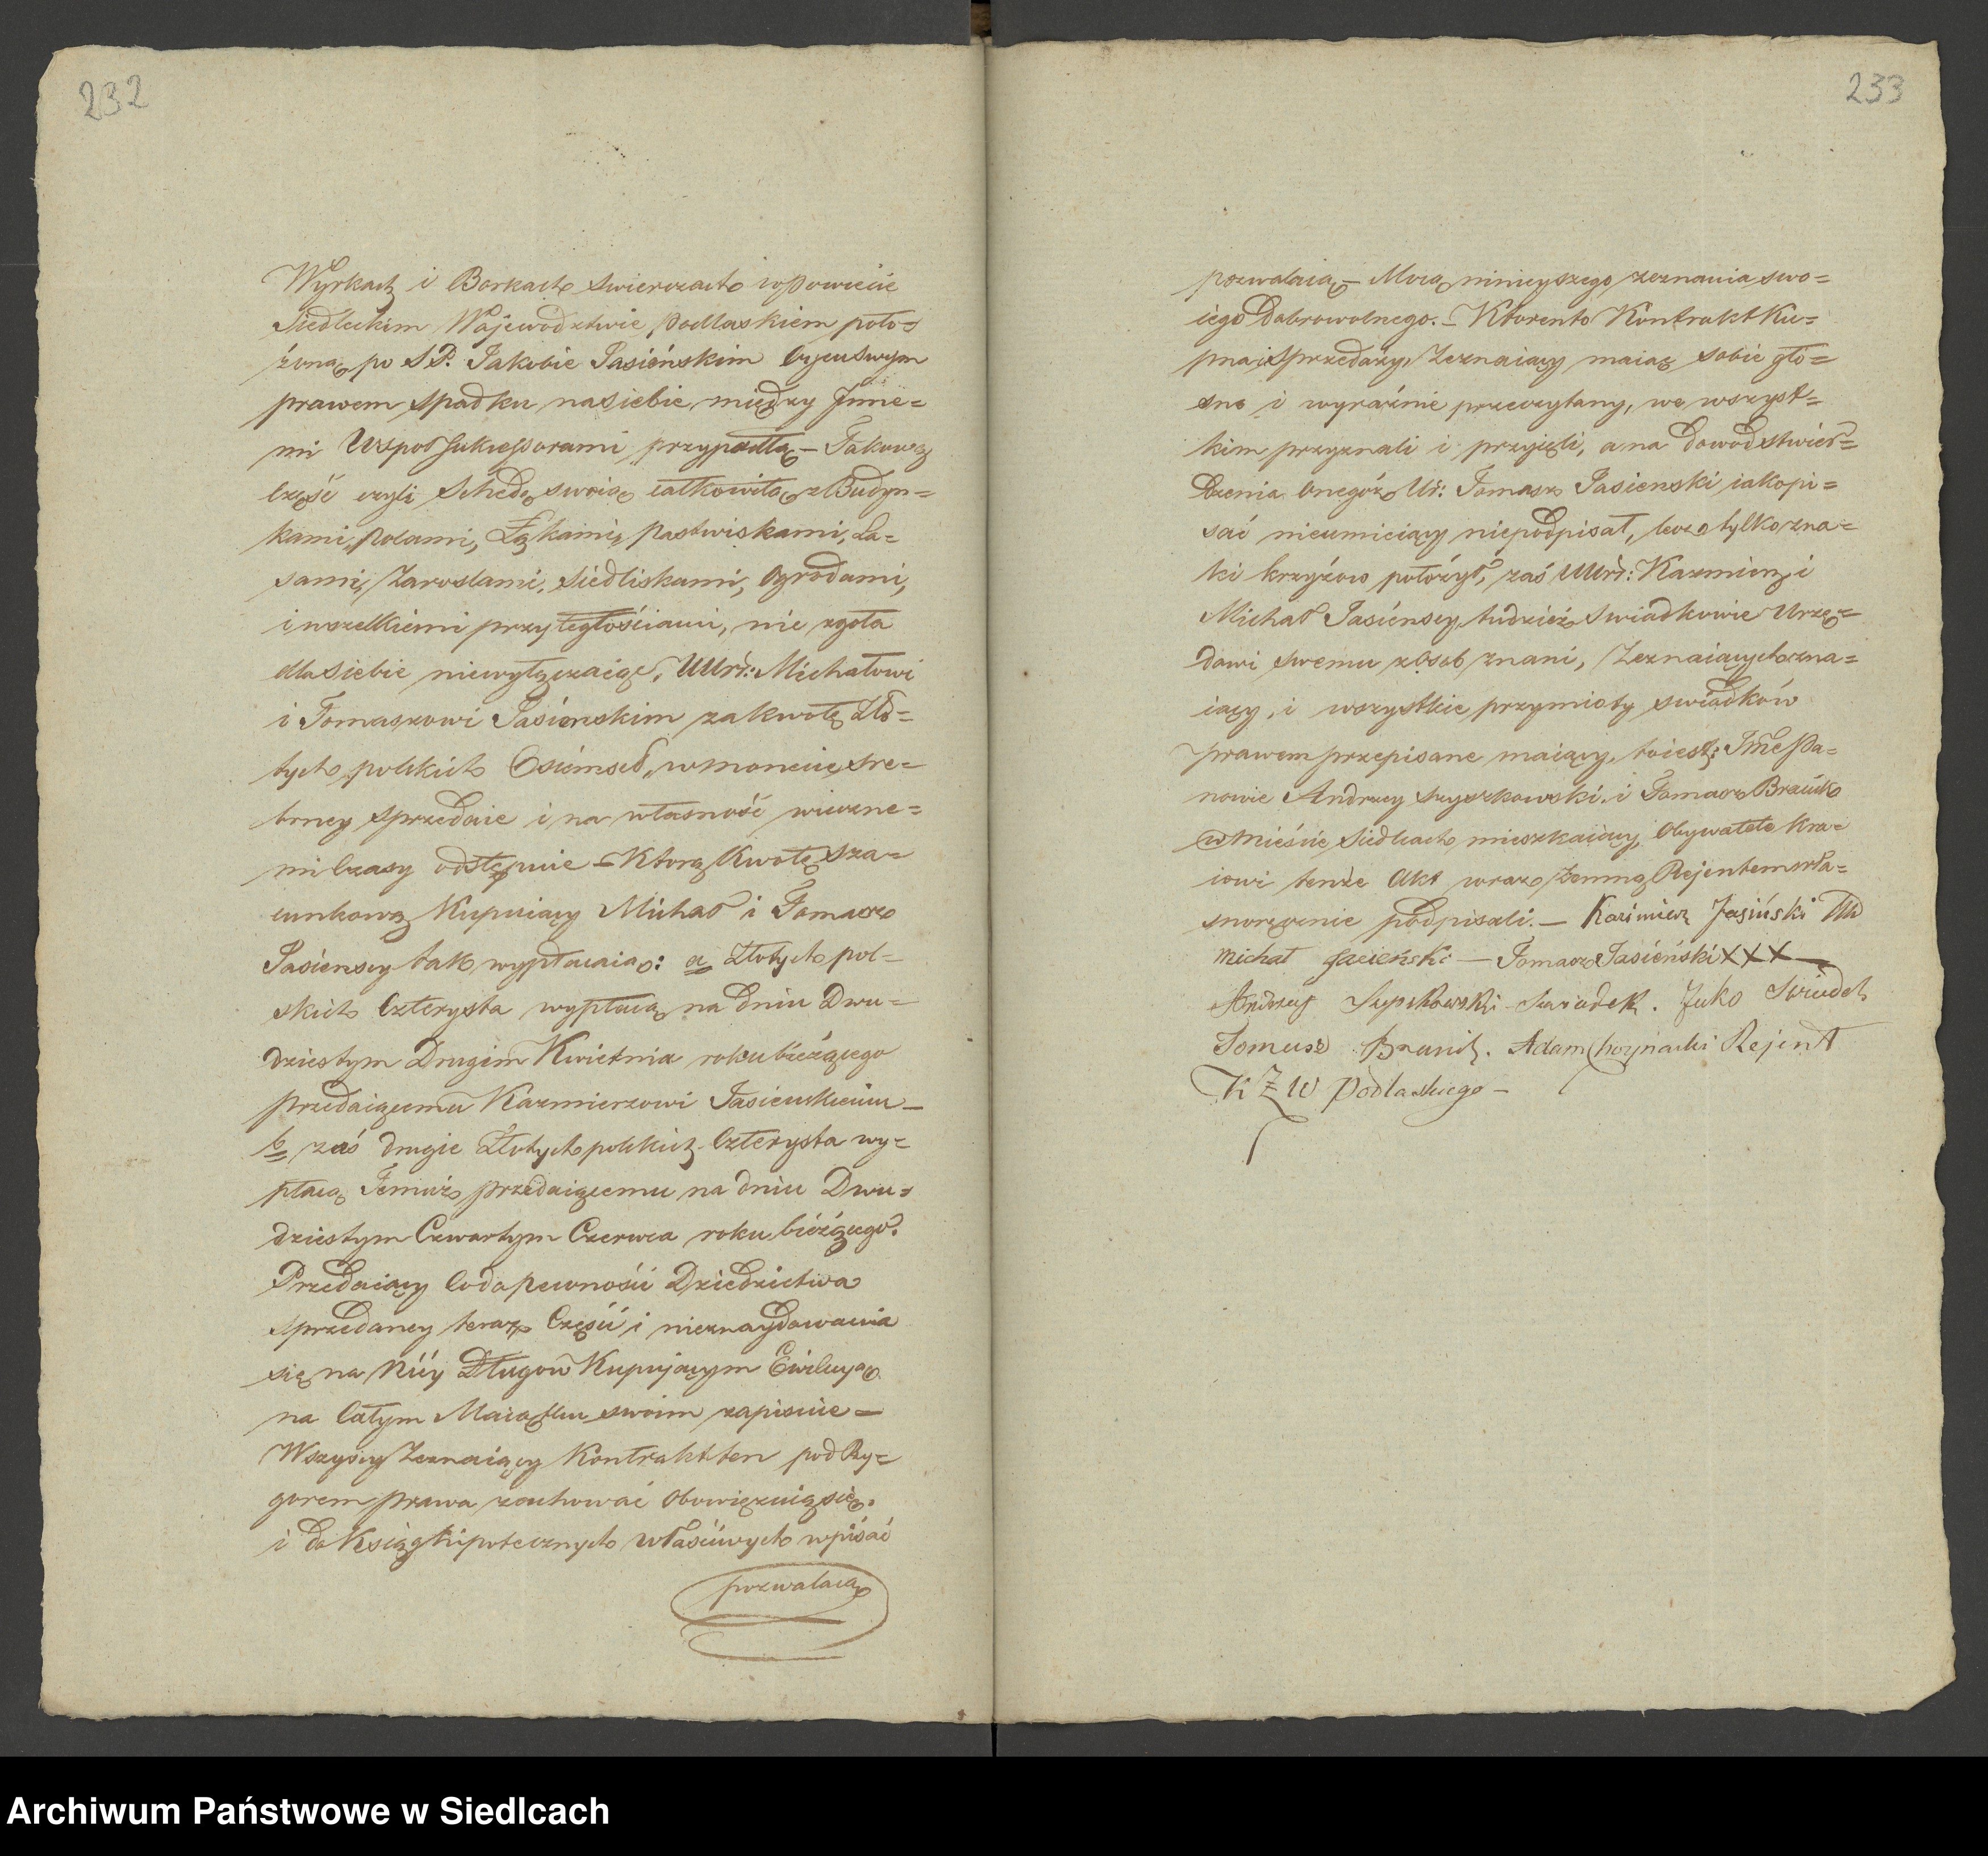 232
Wyrkach i Borkach Swierczach w Powiecie
Siedleckim Wojewodztwie Podlaskiem poło=
żoną, po S.P. Jakobie Jasieńskim Oycu Swym
prawem Spadku na siebie między Inne=
mi Wspoł Sukcessorami przypadłą – Takową
Część czyli Schedę swoią całkowitą z Budyn=
kami, Polami, Łąkami, pastwiskami, La=
sami, Zaroslami, Siedliskami, Ogrodami,
i wszelkiemi przyległościami, nic zgoła
dla siebie niewyłączaiąc, UUrd: Michałowi
i Tomaszowi Jasienskim za kwotę Zło=
tych polskich Osiemset, w monecie sre=
brney sprzedaie i na własność wieczne=
mi Czasy odstępuie – Ktorą Kwotę sza=
cunkową Kupuiący Michał i Tomasz
Jasienscy tak wypłacaią: a Złotych pol=
skich Czterysta wypłacą na dniu Dwu=
dziestym Drugim Kwietnia roku bieżącego
przedaiącemu Kazmierzowi Jasienskiemu –
b zaś drugie Złotych polskich Czterysta wy=
płacą Temuż przedaiącemu na dniu Dwu=
dziestym Czwartym Czerwca roku bieżącego.
Przedaiący Co do pewności Dziedzictwa
sprzedaney teraz Części i nieznaydowania
się na Niéy Długow Kupującym Ewikcyą
na Całym Maiątku swoim zapisuie –
Wszyscy Zeznaiący Kontrakt ten pod Ry=
gorem prawa zachować Obowięzuią się.
i do Ksiąg Hipotecznych właściwych wpisać
pozwalaią
233
pozwalaią – Mocą ninieyszego zeznania swo=
iego Dobrowolnego. – Ktorento Kontrakt Ku=
pna i Sprzedaży, Zeznaiący maiąc sobie gło=
sno i wyraźnie przeczytany, we wszyst=
kim przyznali i przyjęli, a na dowod stwier=
dzenia Onegóż Ur: Tomasz Jasienski iako pi=
sać nieumieiący niepodpisał, lecz tylko zna=
ki krzyżow położył, zaś UUrd: Kazmierz i
Michał Jasiénscy, tudzież Swiadkowie Urzę=
dowi swemu z Osob znani, Zeznaiących zna=
iący, i wszystkie przymioty swiadków
prawem przepisane maiący, to iest: Ime Pa=
nowie Andrzey Szyszkowski i Tomasz Braun
w Mieście Siedlcach mieszkaiący, Obywatele Kra=
iowi tenże Akt wraz zemną Rejentem wła=
snoręcznie podpisali. – Kazimierz Jasiński
Michał Jasieński – Tomasz Jasieński XXX –
Andrzey Szyszkowski Swiadek. Jako Swiadek
Tomasz. Adam Choynacki Rejent
K Z W Podlaskiego –
Archiwum Państwowe w Siedlcach